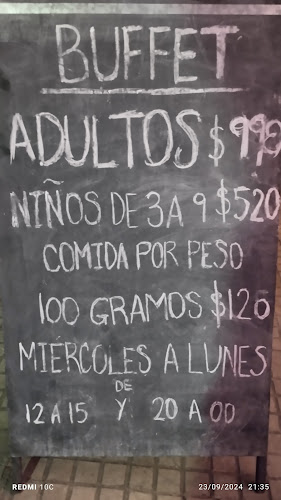 BUFFET
ADULTOS $990
NIÑOS DE 3 A 9 $520
COMIDA POR PESO
100 GRAMOS $120
MIÉRCOLES A LUNES
DE
12 A 15 Y 20 A 00
REDMI 10C 23/09/2024 21:35